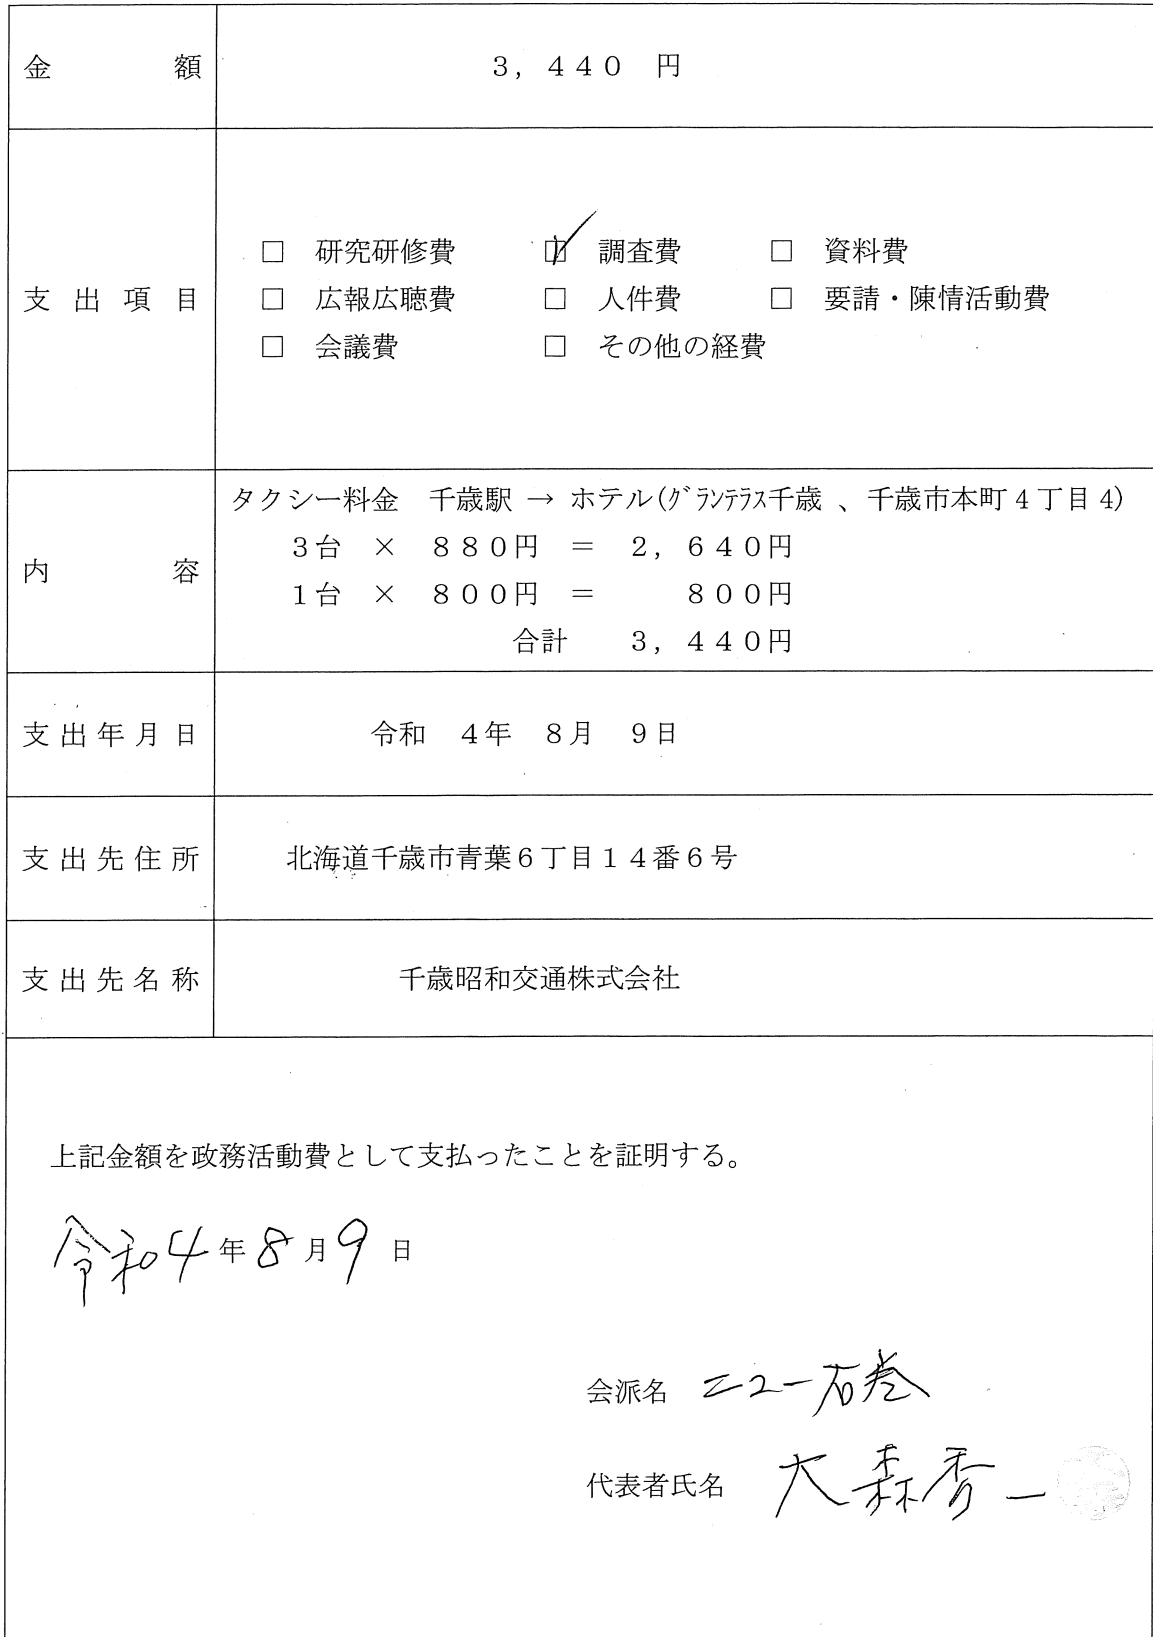 金額 3,440 円
□ 研究研修費 ☑ 調査費 □ 資料費
支出項目 □ 広報広聴費 □ 人件費 □ 要請・陳情活動費
□ 会議費 □ その他の経費
タクシー料金 千歳駅 → ホテル(グランテラス千歳 、千歳市本町4丁目4)
3台 × 880円 = 2,640円
内容
1台 × 800円 = 800円
合計 3,440円
支出年月日 令和 4年 8月 9日
支出先住所 北海道千歳市青葉6丁目14番6号
支出先名称 千歳昭和交通株式会社
上記金額を政務活動費として支払ったことを証明する。
令和4年8月9日
会派名 ニュー石巻
代表者氏名 大森秀一